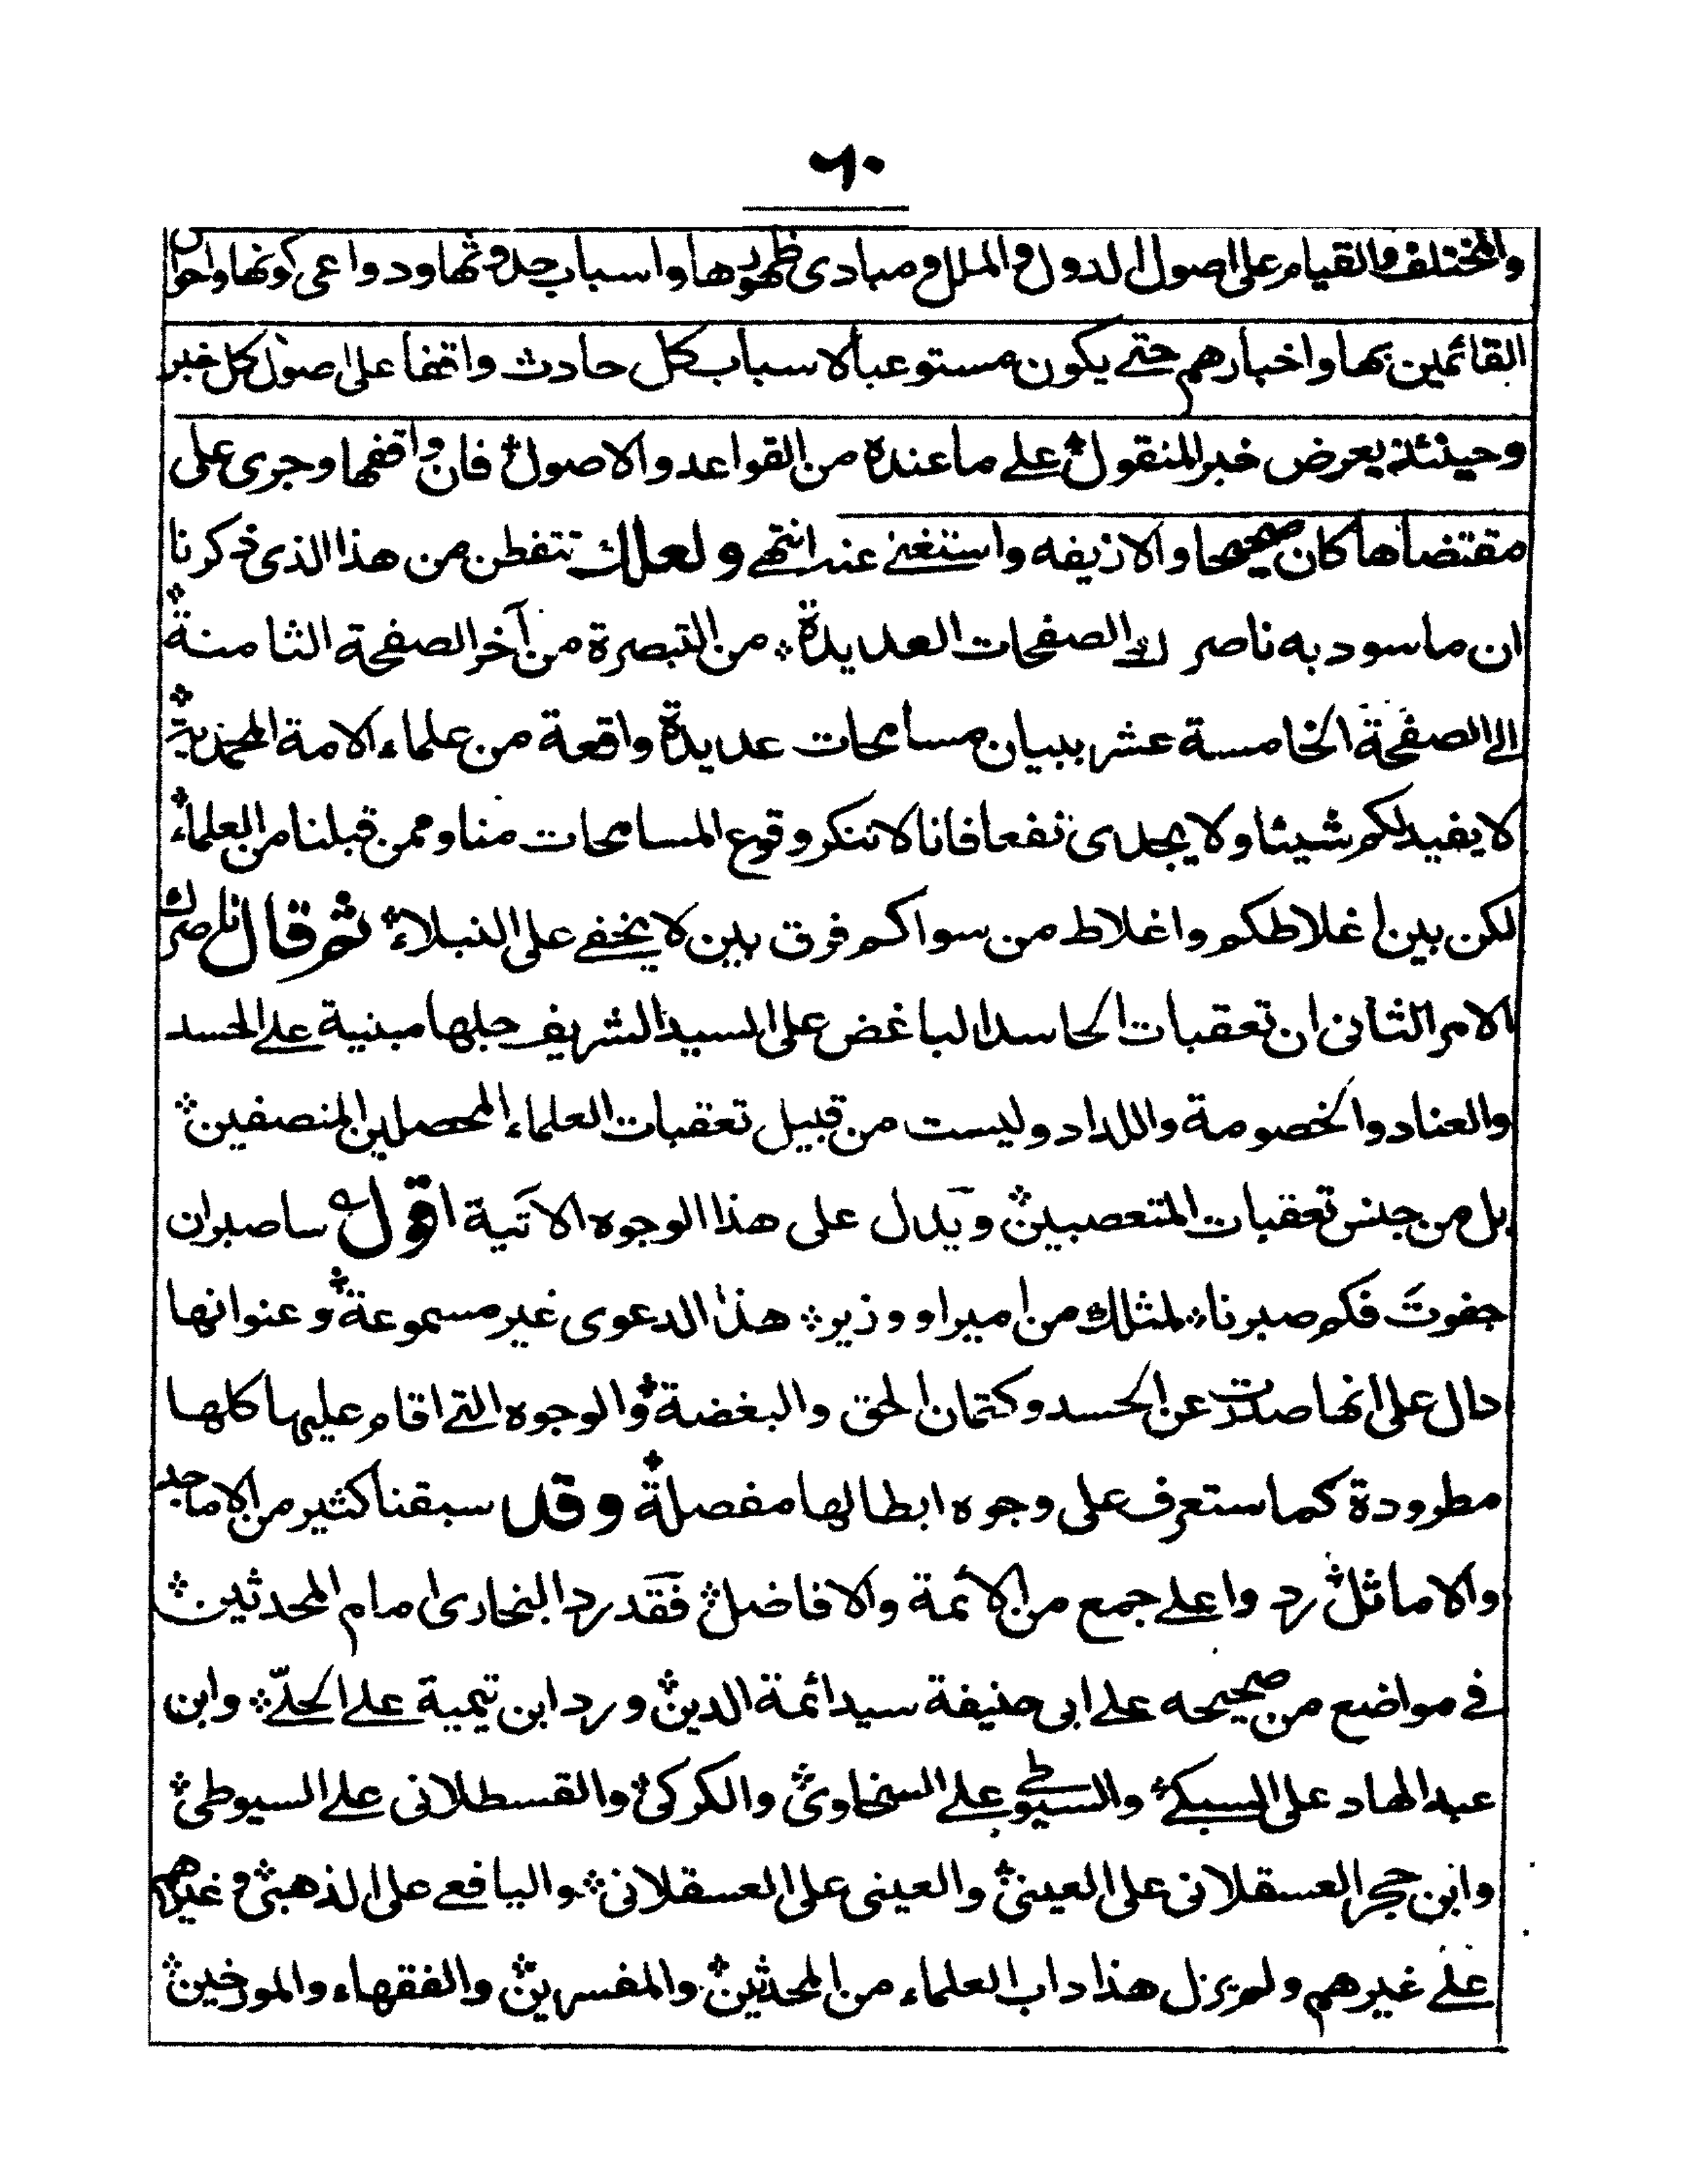 ٦٠
والمختلف والقيام على اصول الدول والملل ومبادى ظهورها واسباب حدوثها ودواعى كونها واحوال
القائمين بها واخبارهم حتى يكون مستوعبا لاسباب كل حادث واقفا على اصول كل خبر
وحينئذ يعرض خبر المنقول على ما عنده من القواعد والاصول فان وافقها وجرى على
مقتضاها كان صحيحا والا زيفه واستغنى عنه انتهى ولعلك تتفطن من هذا الذى ذكرنا
ان ما سود به ناصرك الصفحات العديدة من التبصرة من آخر الصفحة الثامنة
الى الصفحة الخامسة عشر ببيان مسامحات عديدة واقعة من علماء الامة المحمدية
لا يفيد لكم شيئا ولا يجدى نفعا فانا لا ننكر وقوع المسامحات منا وممن قبلنا من العلماء
لكن بين اغلاطكم واغلاط من سواكم فرق بين لا يخفى على النبلاء ثم قال ناصرك
الامر الثانى ان تعقبات الحاسد الباغض على السيد الشريف جلها مبنية على الحسد
والعناد والخصومة واللداد وليست من قبيل تعقبات العلماء المحصلين المنصفين
بل من جنس تعقبات المتعصبين ويدل على هذا الوجوه الآتية اقول ساصبر ان
جفوت فكم صبرنا لمثلك من امير او وزير هذا الدعوى غير مسموعة وعنوانها
دال على انها صدرت عن الحسد وكتمان الحق والبغضة والوجوه التى اقام عليها كلها
مطرودة كما ستعرف على وجوه ابطالها مفصلة وقد سبقنا كثير من الاماجد
والاماثل ردوا على جمع من الائمة والافاضل فقد رد البخارى امام المحدثين
فى مواضع من صحيحه على ابى حنيفة سيد ائمة الدين ورد ابن تيمية على الحلّى وابن
عبد الهاد على السبكى والسيوطى على السخاوى والكركى والقسطلانى على السيوطى
وابن حجر العسقلانى على العينى والعينى على العسقلانى واليافعى على الذهبى وغيرهم
على غيرهم ولم يزل هذا داب العلماء من المحدثين والمفسرين والفقهاء والمورخين